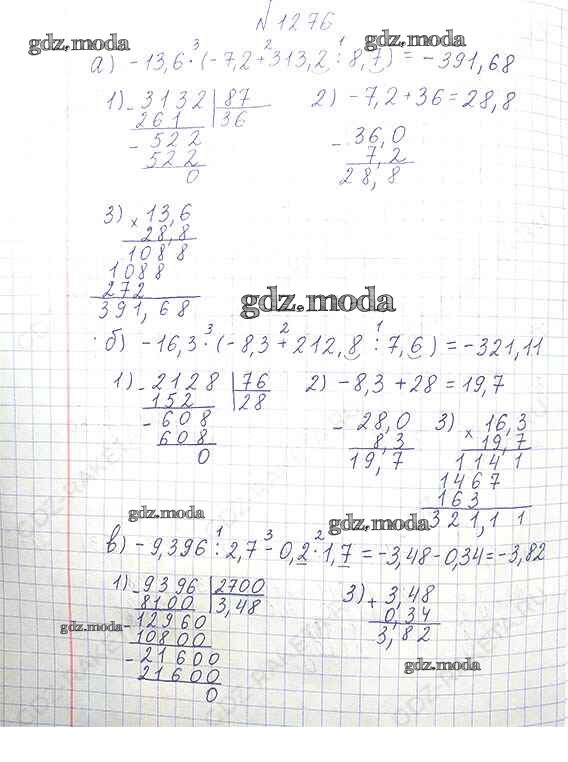 № 1276
gdz.moda gdz.moda
а) -13,6 ·³ (-7,2 +² 313,2 :¹ 8,7) = -391,68
1) - 3132 | 87
261 | 36
- 522
522
0
2) -7,2 + 36 = 28,8
- 36,0
7,2
28,8
3) × 13,6
28,8
1088
1088
272
391,68
gdz.moda
б) -16,3 ·³ (-8,3 +² 212,8 :¹ 7,6) = -321,11
1) - 2128 | 76
152 | 28
- 608
608
0
2) -8,3 + 28 = 19,7
- 28,0
8,3
19,7
3) × 16,3
19,7
1141
1467
163
321,11
gdz.moda
gdz.moda
в) -9,396 :¹ 2,7 -³ 0,2 ·² 1,7 = -3,48 - 0,34 = -3,82
1) - 9396 | 2700
8100 | 3,48
- 12960
10800
- 21600
21600
0
gdz.moda
3) + 3,48
0,34
3,82
gdz.moda